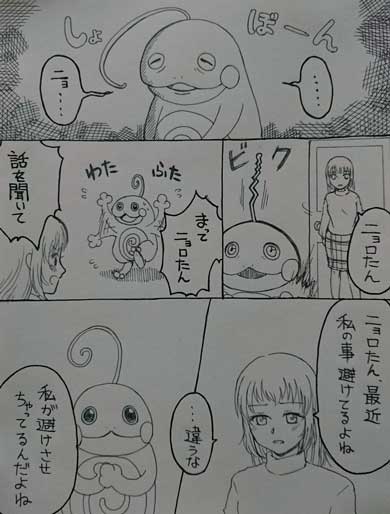 しょ
ぼーん
…
ニョ…
ニョロたん
ビク
まって
ニョロたん
わた
ふた
話を聞いて
ニョロたん 最近
私の事 避けてるよね
…違うな
私が避けさせ
ちゃってるんだよね